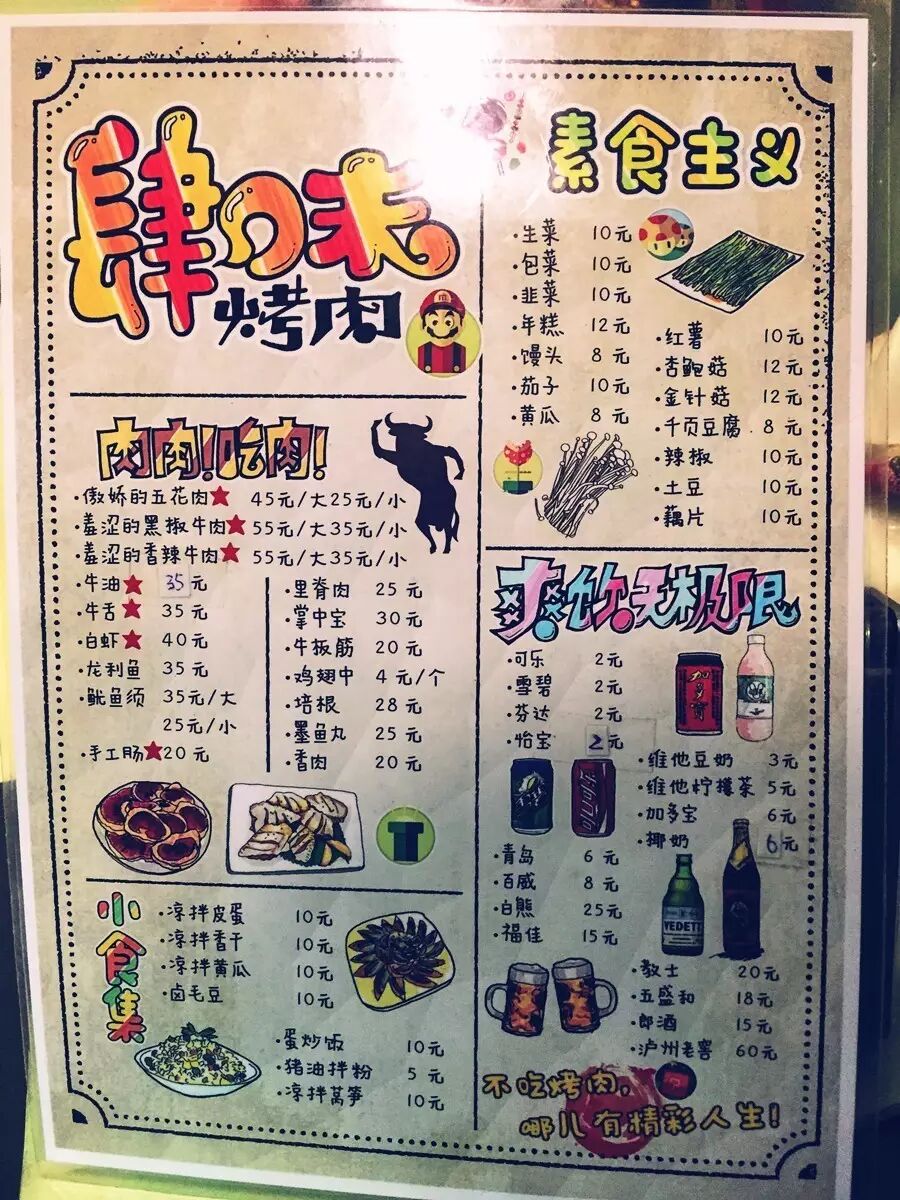 肆口味
烤肉
肉肉!吃肉!
·傲娇的五花肉 45元/大25元/小
·羞涩的黑椒牛肉 55元/大35元/小
·羞涩的香辣牛肉 55元/大35元/小
·牛油 35元
·牛舌 35元
·白虾 40元
·龙利鱼 35元
·鱿鱼须 35元/大
25元/小
·手工肠 20元
·里脊肉 25元
·掌中宝 30元
·牛板筋 20元
·鸡翅中 4元/个
·培根 28元
·墨鱼丸 25元
·香肉 20元
小食集
·凉拌皮蛋 10元
·凉拌香干 10元
·凉拌黄瓜 10元
·卤毛豆 10元
·蛋炒饭 10元
·猪油拌粉 5元
·凉拌莴笋 10元
素食主义
·生菜 10元
·包菜 10元
·韭菜 10元
·年糕 12元
·馒头 8元
·茄子 10元
·黄瓜 8元
·红薯 10元
·杏鲍菇 12元
·金针菇 12元
·千页豆腐 8元
·辣椒 10元
·土豆 10元
·藕片 10元
爽饮无极限
·可乐 2元
·雪碧 2元
·芬达 2元
·怡宝 2元
加多宝
·维他豆奶 3元
·维他柠檬茶 5元
·加多宝 6元
·椰奶 6元
·青岛 6元
·百威 8元
·白熊 25元
·福佳 15元
VEDETT
·教士 20元
·五盛和 18元
·郎酒 15元
·泸州老窖 60元
不吃烤肉,
哪儿有精彩人生!